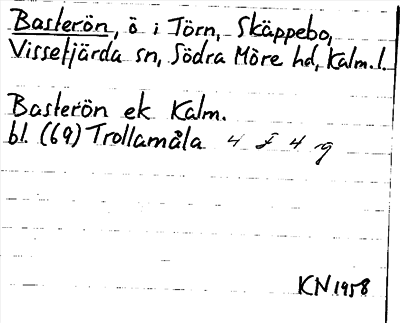 Basterön, ö i Törn, Skäppebo,
Vissefjärda sn, Södra Möre hd, Kalm. l.
Basterön ek Kalm.
bl. (69) Trollamåla 4 f 4 g
KN 1958